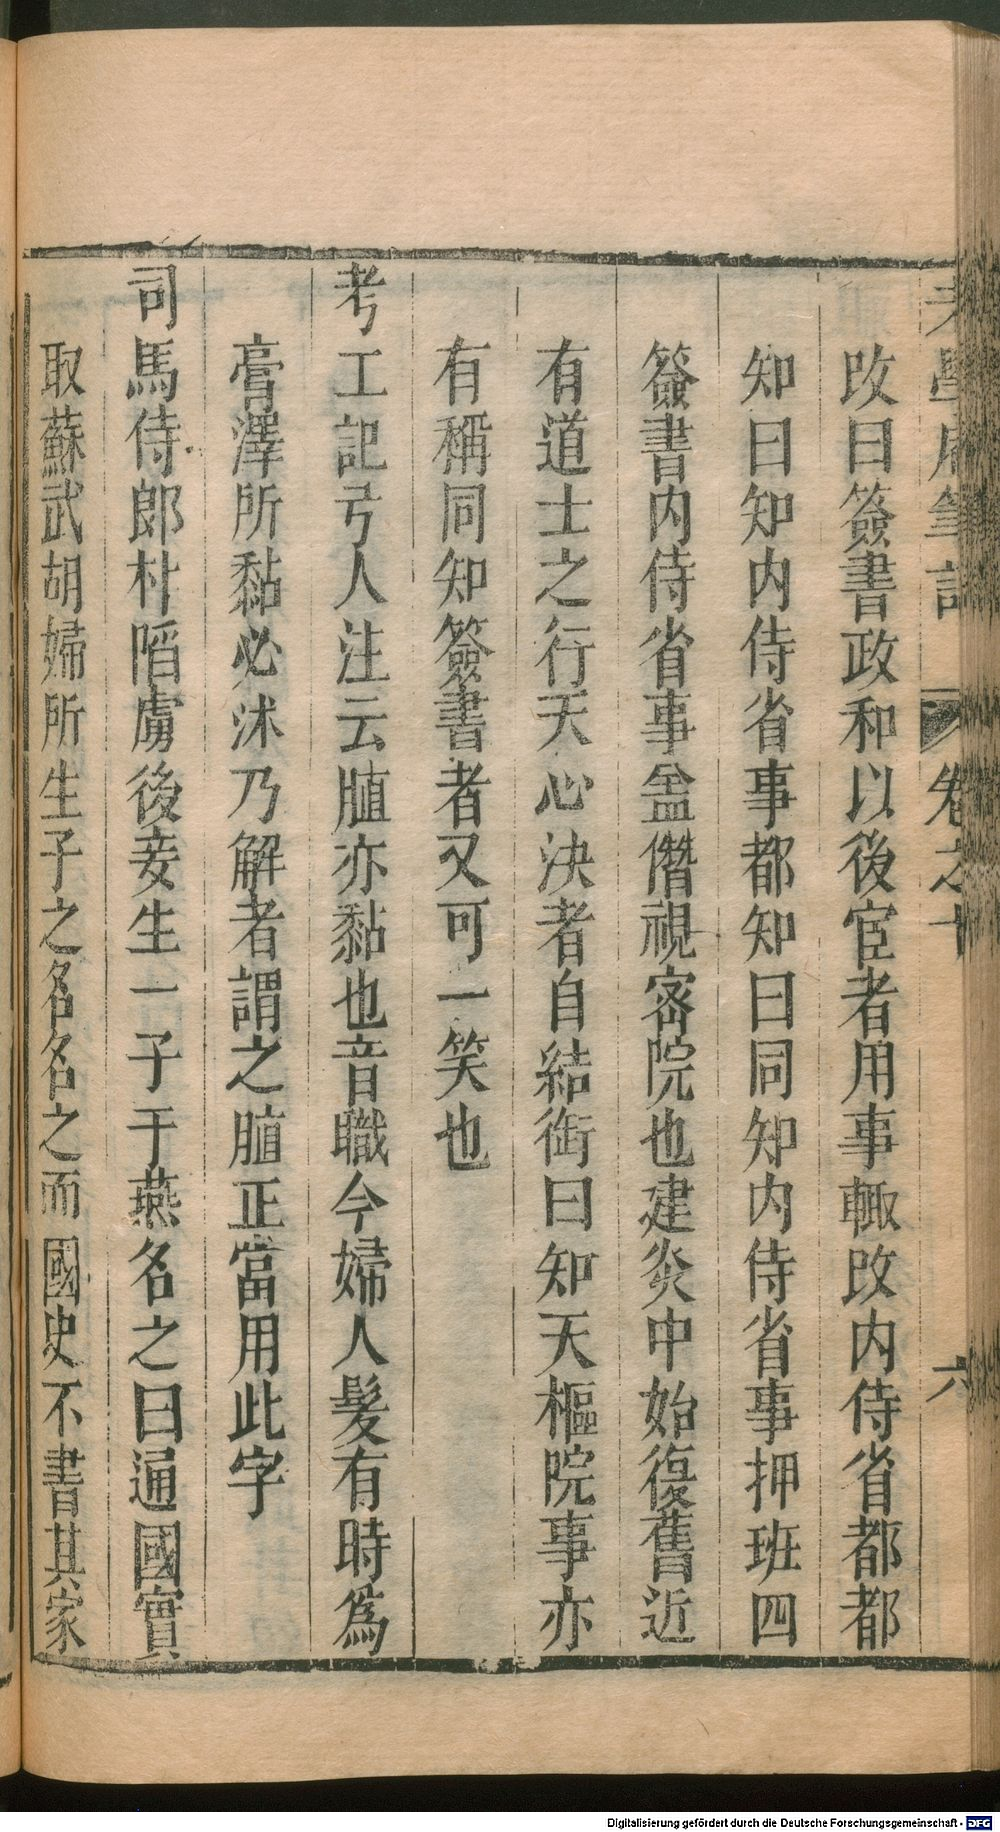 老學庵筆記 卷之十 六
改曰簽書政和以後宦者用事輙改内侍省都都
知曰知内侍省事都知曰同知内侍省事押班四
簽書内侍省事盖僭視宻院也建炎中始復舊近
有道士之行天心決者自結銜曰知天樞院事亦
有稱同知簽書者又可一笑也
考工記弓人注云䐈亦黏也音職今婦人髮有時爲
膏澤所黏必沐乃解者謂之䐈正當用此字
司馬侍郎朴陷虜後妾生一子于燕名之曰通國實
取蘇武胡婦所生子之名名之而國史不書其家
Digitalisierung gefördert durch die Deutsche Forschungsgemeinschaft - DFG